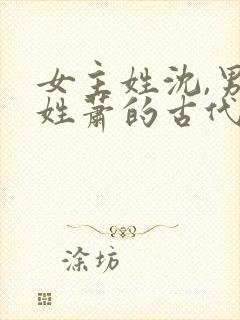 女主姓沈,男
姓萧的古代
涂坊